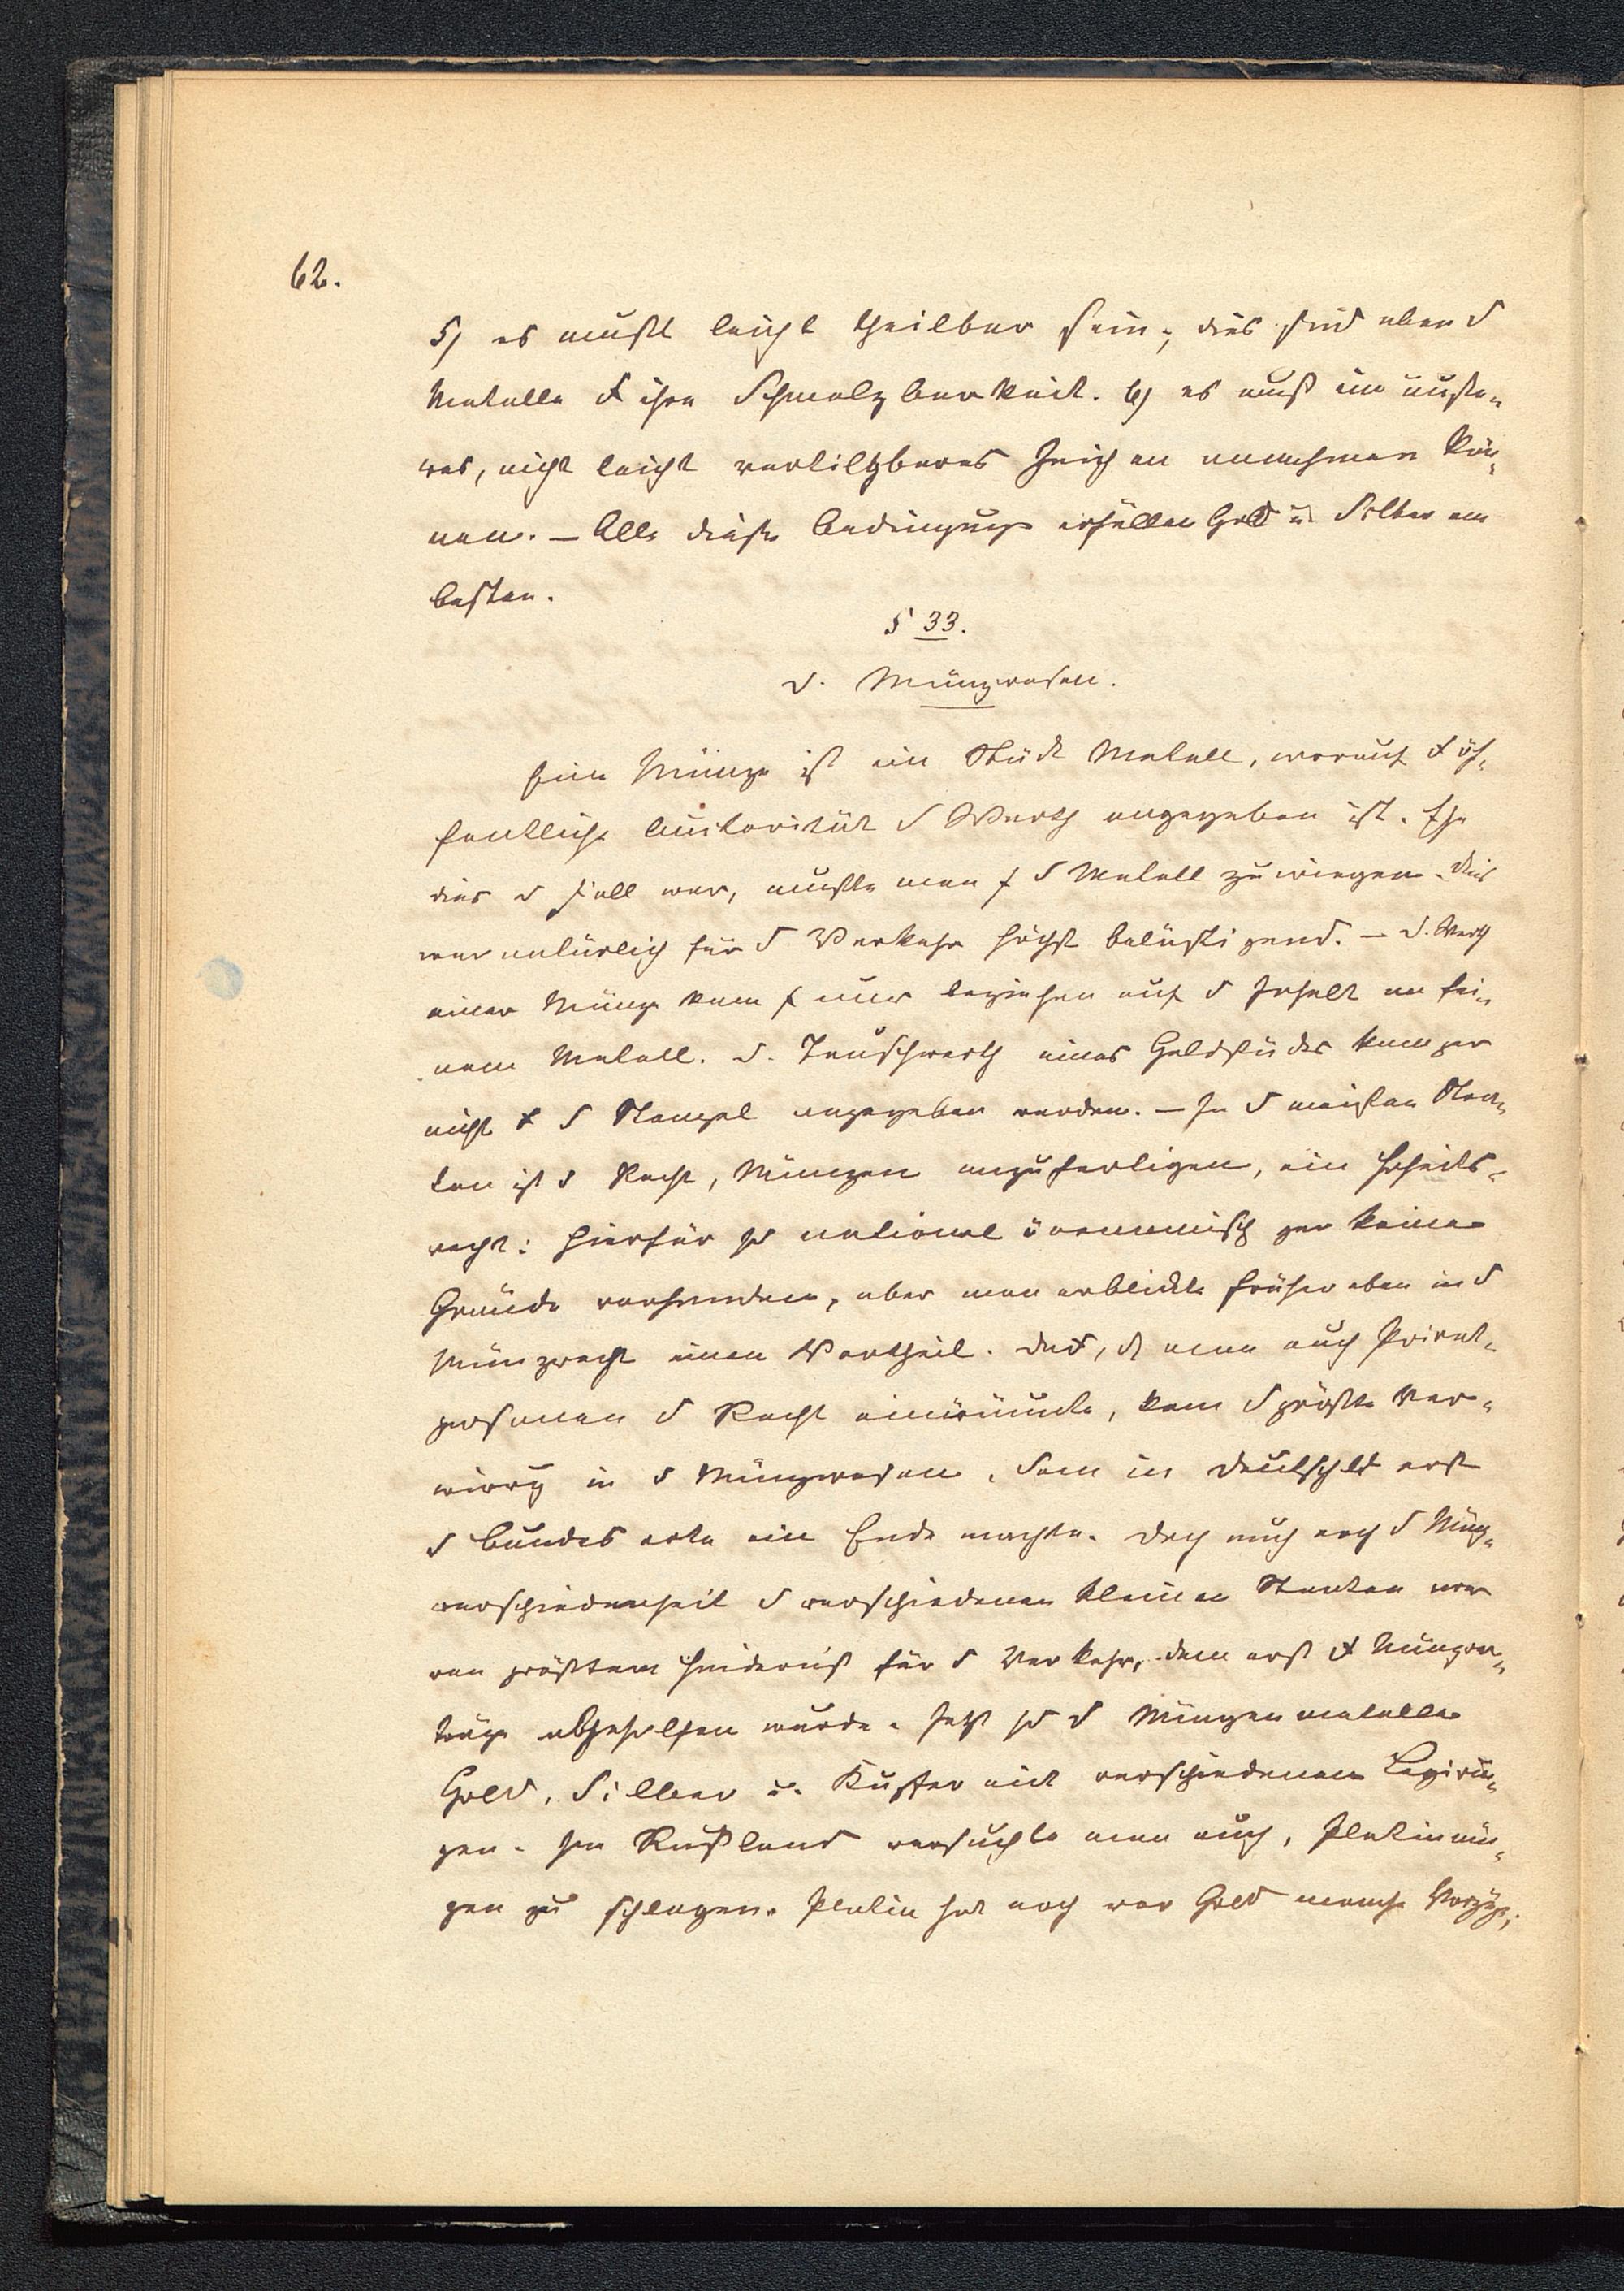 62.
5) es mußt leicht theilbar sein; dies sind eben d
Metalle d ihre Schmelzbarkeit. 6) es muß ein äuße-
res, nicht leicht vertilgbares Zeichen annehmen kön-
nen. – Alle diese Bedingungen erfüllen Gold u. Silber am
besten.
§ 33.
D. Münzwesen.
Eine Münze ist ein Stück Metall, worauf d öf-
fentliche Autorität d Werth angegeben ist. Ehe
dies d Fall war, mußte man d Metall zuwiegen. Dies
war natürlich für d Verkehr höchst belästigend. – D. Werth
einer Münze kann nur beziehen auf d Inhalt an fei-
nem Metall. D. Tauschwerth eines Geldstückes kann gar
nicht d Stempel angegeben werden. – In d meisten Staa-
ten ist d Recht, Münzen anzufertigen, ein Hoheits-
recht: hierfür sd nationalöconomisch gar keine
Gründe vorhanden, aber man erblickte früher eben in d
Münzrecht einen Vortheil. Dad, d man auch Privat-
personen d Recht einräumte, kam d größte Ver-
wirrg in d Münzwesen, dem in Deutschld erst
d Bundesakte ein Ende machte. Doch auch noch d Münz-
verschiedenheit d verschiedenen kleinen Staaten war
von größtem Hinderniß für d Verkehr, dem erst d Münzver-
träge abgeholfen wurde. Jetzt sd d Münzenmetalle
Gold, Silber u. Kupfer mit verschiedenen Legirun-
gen. In Rußland versuchte man auch, Platinmün-
zen zu schlagen. Platin hat noch vor Gold manche Vorzüge;